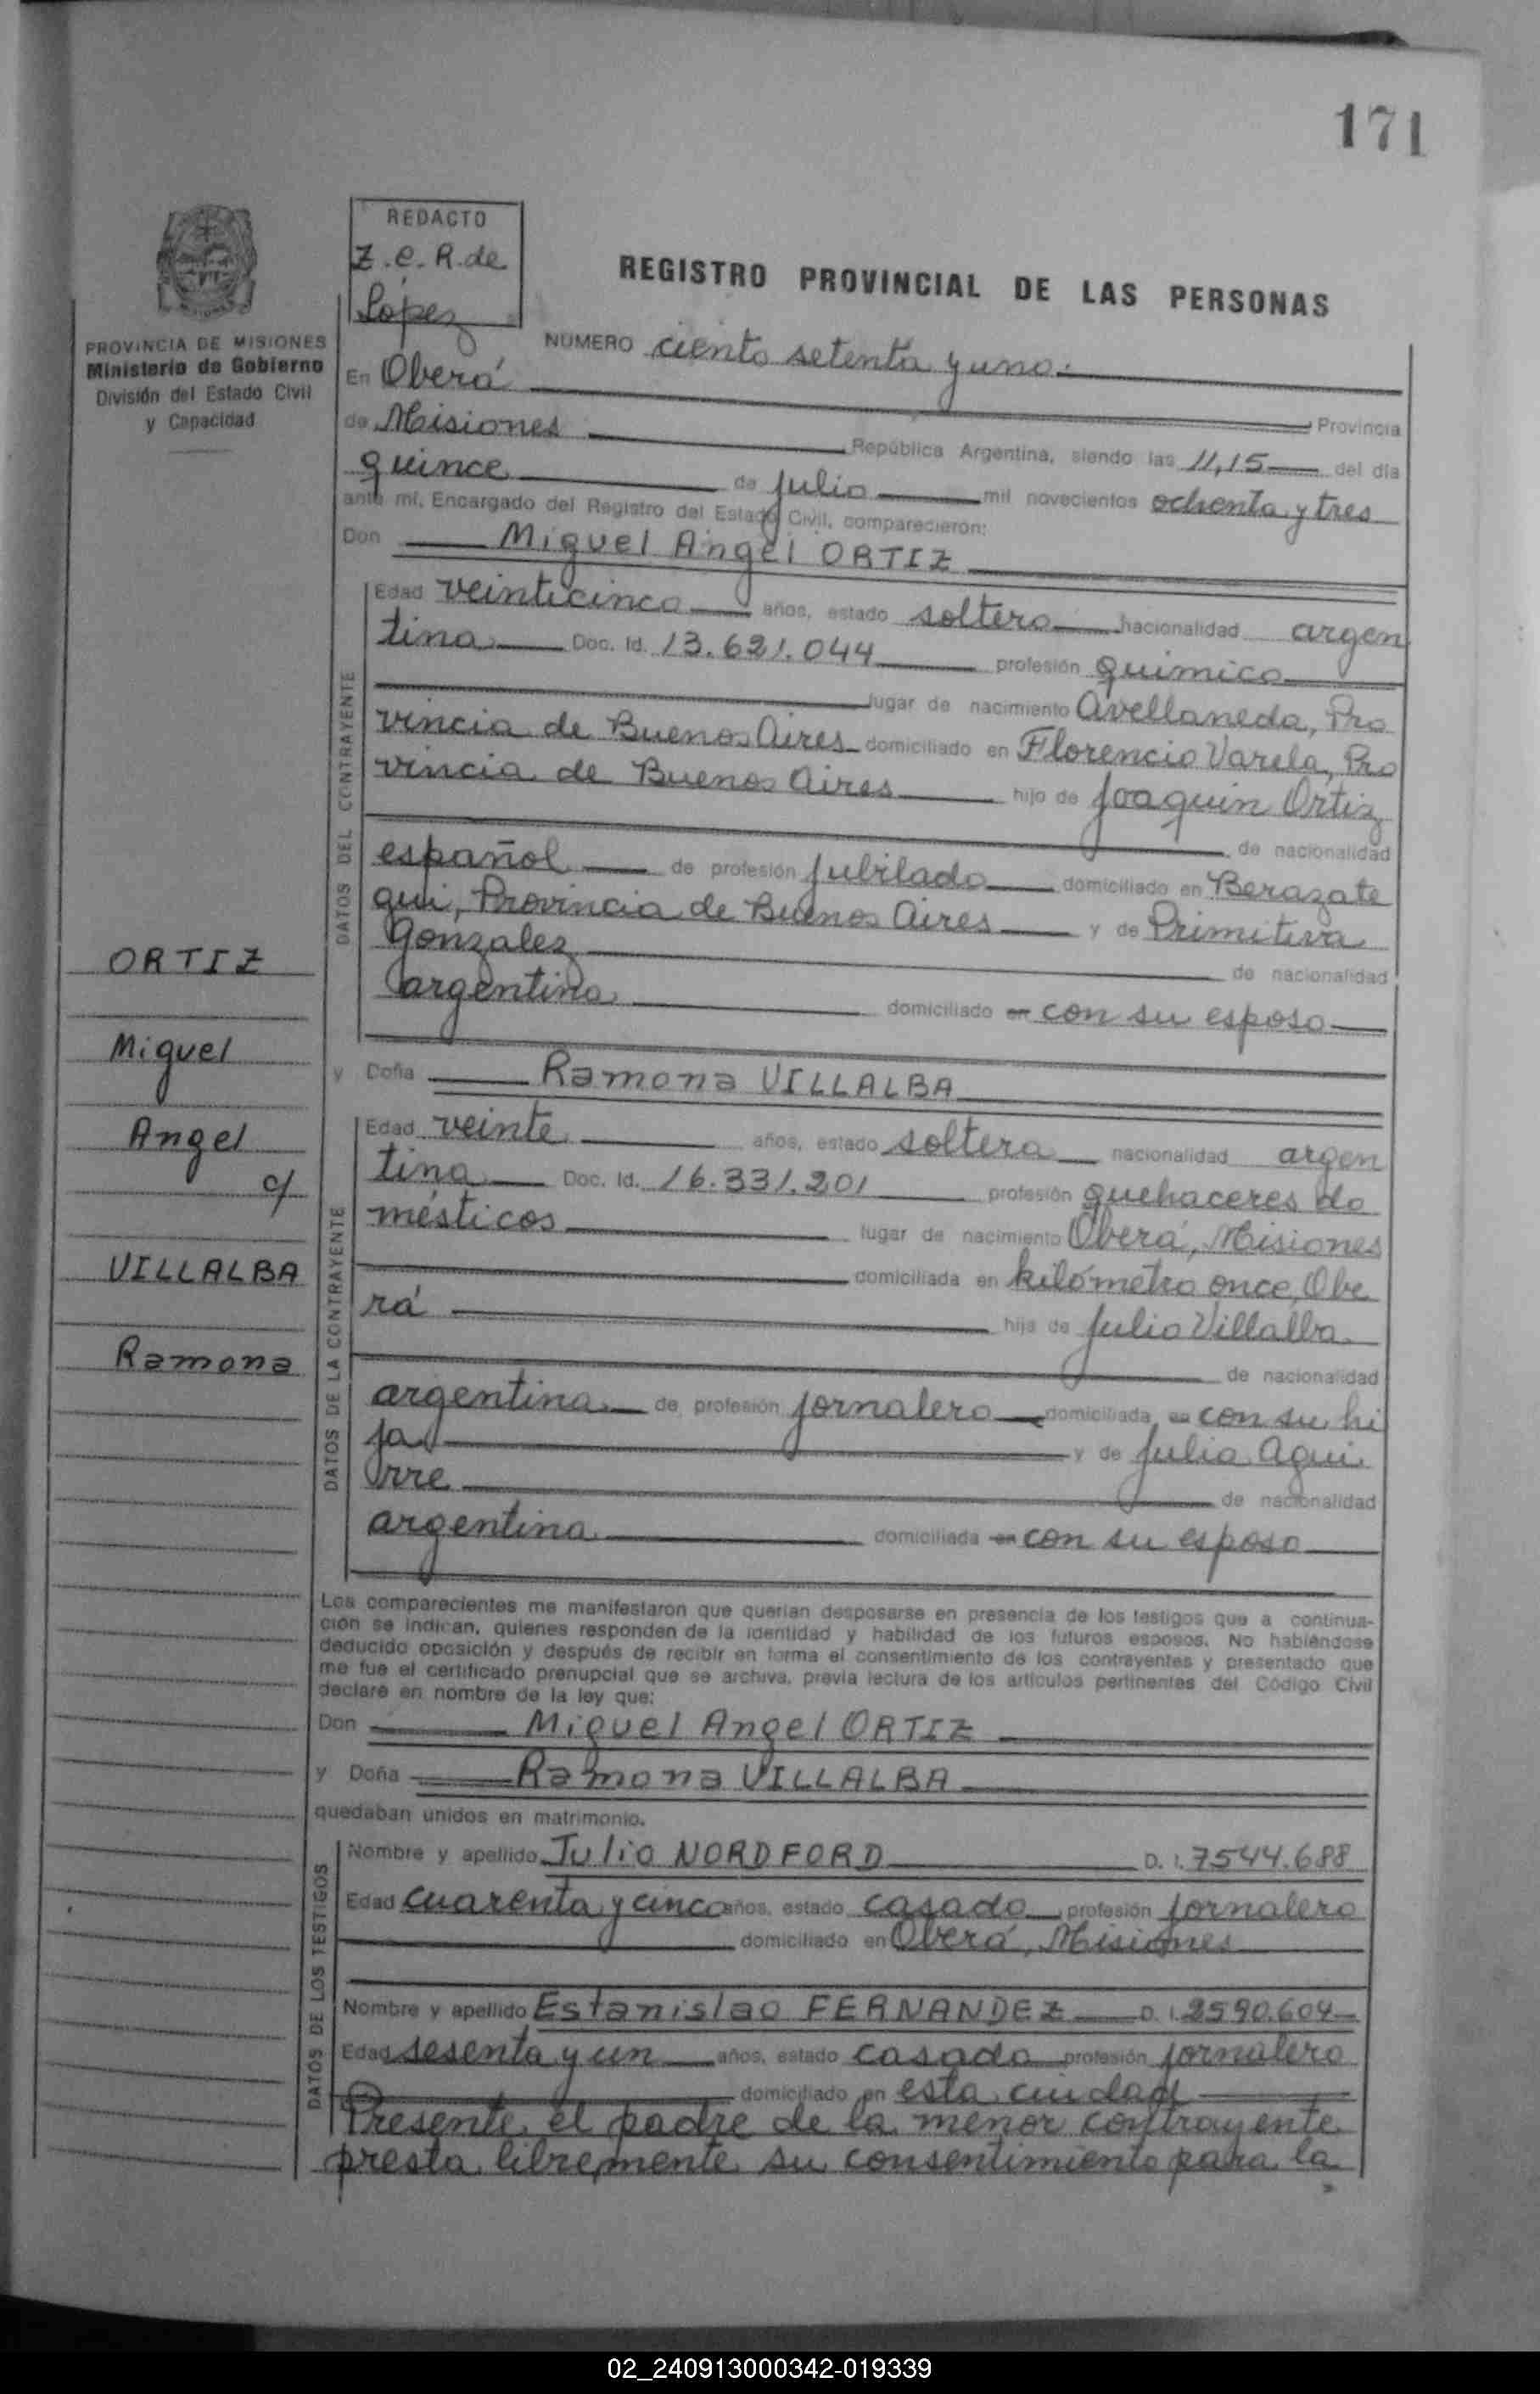 171
REDACTO
Z.E.R. de
López
REGISTRO PROVINCIAL DE LAS PERSONAS
PROVINCIA DE MISIONES
Ministerio de Gobierno
División del Estado Civil
y Capacidad
NUMERO ciento setenta y uno.
En Oberá Provincia
de Misiones República Argentina, siendo las 11,15 del día
quince de julio mil novecientos ochenta y tres
ante mí, Encargado del Registro del Estado Civil, comparecieron:
Don Miguel Angel ORTIZ
DATOS DEL CONTRAYENTE
Edad veinticinco años, estado soltero nacionalidad argen
tina Doc. Id. 13.621.044 profesión químico
lugar de nacimiento Avellaneda, Pro
vincia de Buenos Aires domiciliado en Florencio Varela, Pro
vincia de Buenos Aires hijo de Joaquin Ortiz
de nacionalidad
español de profesión jubilado domiciliado en Berazate
gui, Provincia de Buenos Aires y de Primitiva
Gonzalez de nacionalidad
argentina domiciliado en con su esposo
y Doña Ramona VILLALBA
DATOS DE LA CONTRAYENTE
Edad veinte años, estado soltera nacionalidad argen
tina Doc. Id. 16.331.201 profesión quehaceres do
mésticos lugar de nacimiento Oberá, Misiones
domiciliada en kilómetro once, Obe
rá hija de Julio Villalba
de nacionalidad
argentina de profesión jornalero domiciliada en con su hi
ja y de Julia Agui
rre de nacionalidad
argentina domiciliada en con su esposo
ORTIZ
Miguel
Angel
c/
VILLALBA
Ramona
Los comparecientes me manifestaron que querían desposarse en presencia de los testigos que a continua-
ción se indican, quienes responden de la identidad y habilidad de los futuros esposos. No habiéndose
deducido oposición y después de recibir en forma el consentimiento de los contrayentes y presentado que
me fue el certificado prenupcial que se archiva, previa lectura de los artículos pertinentes del Código Civil
declaré en nombre de la ley que:
Don Miguel Angel ORTIZ
y Doña Ramona VILLALBA
quedaban unidos en matrimonio.
DATOS DE LOS TESTIGOS
Nombre y apellido Julio NORDFORD D. I. 7544.688
Edad cuarenta y cinco años, estado casado profesión jornalero
domiciliado en Oberá, Misiones
Nombre y apellido Estanislao FERNANDEZ D. I. 2590.604
Edad sesenta y un años, estado casado profesión jornalero
domiciliado en esta ciudad
Presente el padre de la menor contrayente
presta libremente su consentimiento para la
02_240913000342-019339